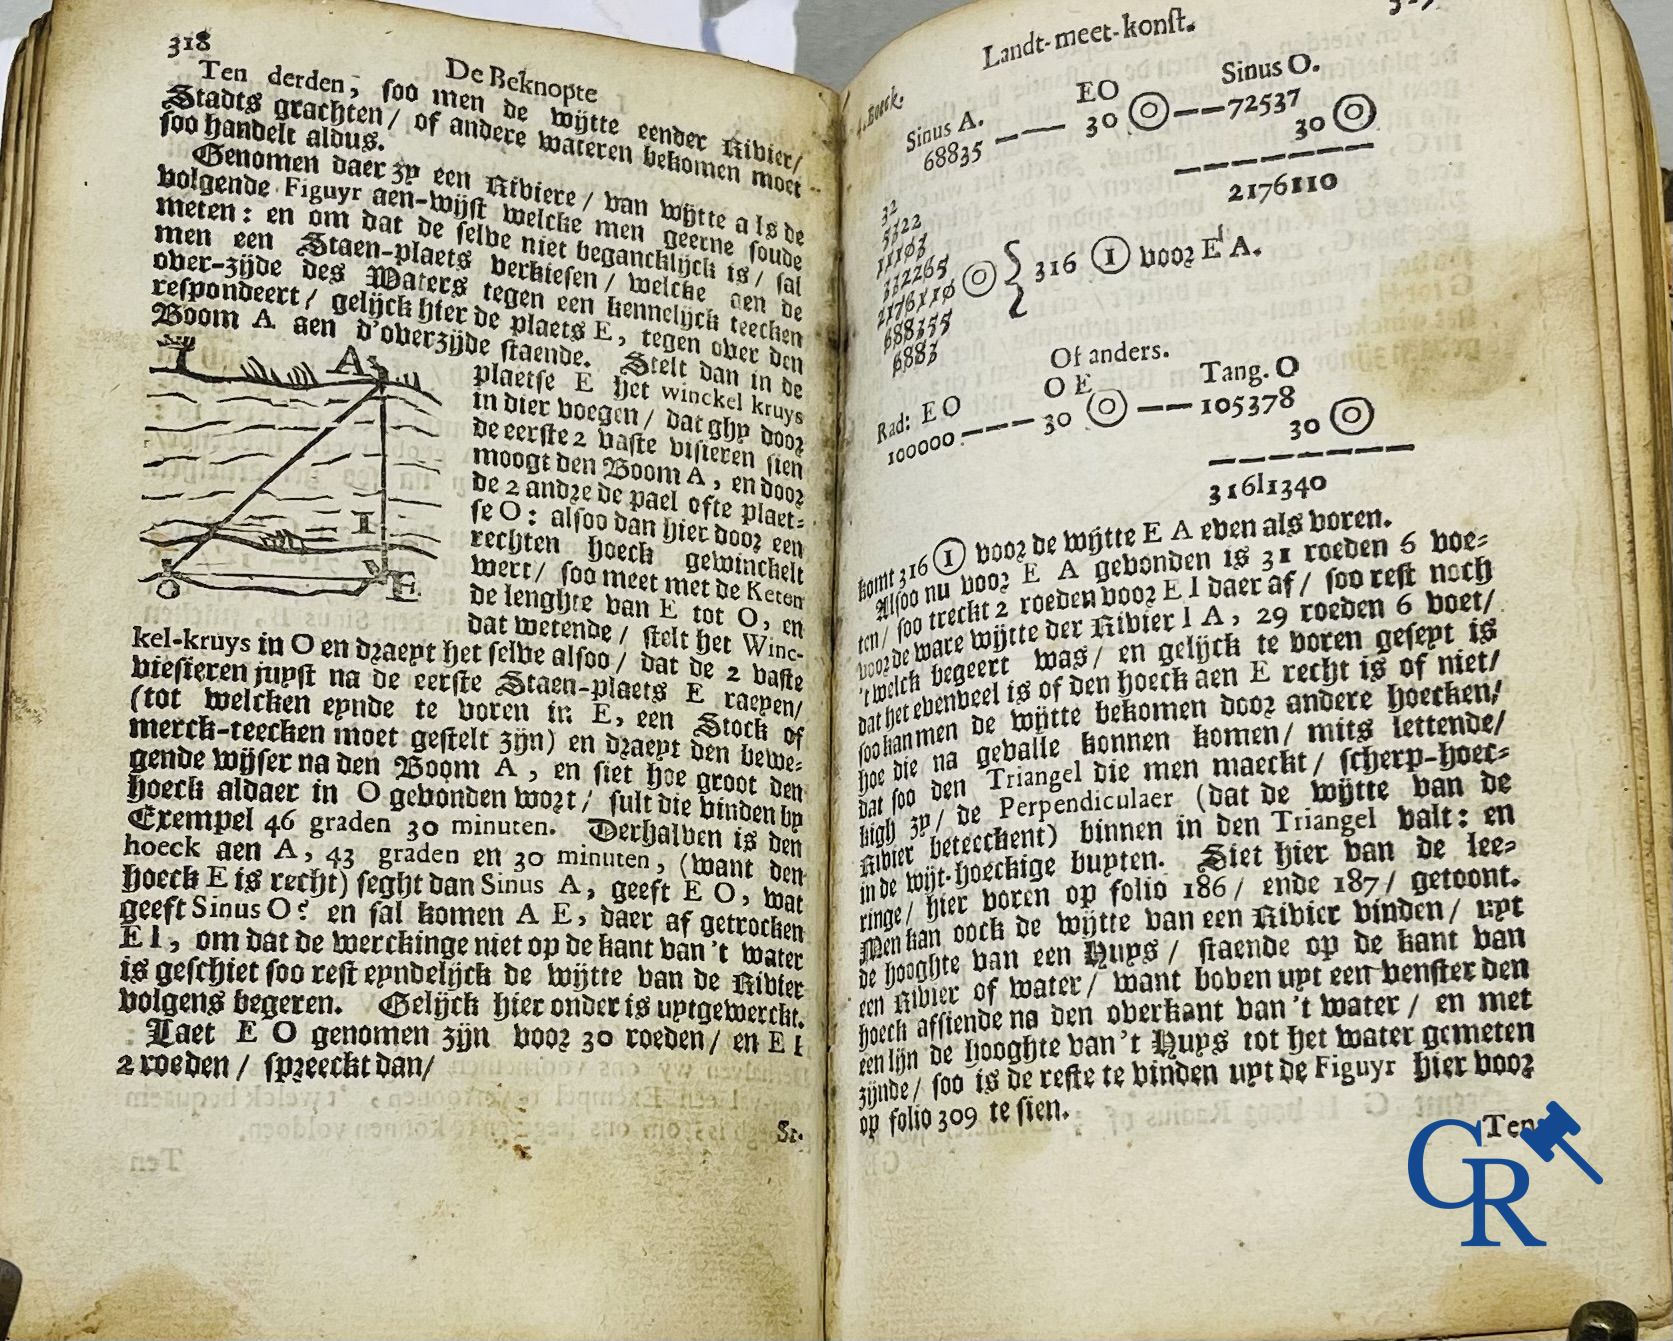 318
De Beknopte
Ten derden, soo men de wijtte eender Rivier/
Stadts grachten/ of andere wateren bekomen moet
soo handelt aldus.
Genomen daer zy een Riviere/ van wijtte als de
volgende Figuyr aen-wijst welcke men geerne soude
meten: en om dat de selve niet gancklijck is/ sal
men een Staen-plaets verkiesen/ welcke aen de
over-zijde des Waters tegen een kennelijck teecken
respondeert/ gelijck hier de plaets E, tegen over den
Boom A aen d'overzijde staende. Stelt dan in de
plaetse E het winckel kruys
in dier voegen/ dat ghy door
de eerste 2 vaste visieren sien
moogt den Boom A, en door
de 2 andre de pael ofte plaet-
se O: alsoo dan hier door een
rechten hoeck gewinckelt
wert/ soo meet met de Keten
de lenghte van E tot O, en
dat wetende/ stelt het Winc-
A
I
O
E
kel-kruys in O en draeyt het selve alsoo/ dat de 2 vaste
viesieren juyst na de eerste Staen-plaets E raeyen/
(tot welcken eynde te voren in E, een Stock of
merck-teecken moet gestelt zijn) en draeyt den bewe-
gende wijser na den Boom A, en siet hoe groot den
hoeck aldaer in O gevonden wort/ sult die vinden by
Exempel 46 graden 30 minuten. Derhalven is den
hoeck aen A, 43 graden en 30 minuten, (want den
hoeck E is recht) seght dan Sinus A, geeft E O, wat
geeft Sinus O? en sal komen A E, daer af getrocken
E I, om dat de werckinge niet op de kant van 't water
is geschiet soo rest eyndelijck de wijtte van de Rivier
volgens begeren. Gelijck hier onder is uytgewerckt.
Laet E O genomen zijn voor 30 roeden/ en E I
2 roeden/ spreeckt dan/
Si-
Landt-meet-konst.
Boeck.
Sinus A. EO Sinus O.
68835 --- 30 ⊚ -- 72537
30 ⊚
2176110
32
5322
11103
332265
2176110 ⊚ { 316 ① voor E A.
688355
6883
Of anders.
Rad: E O O E Tang. O
100000 --- 30 ⊚ -- 105378
30 ⊚
316|1340
komt 316 ① voor de wijtte E A even als voren.
Alsoo nu voor E A gevonden is 31 roeden 6 voe-
ten/ soo treckt 2 roeden voor E I daer af/ soo rest noch
voor de ware wijtte der Rivier I A, 29 roeden 6 voet/
't welck begeert was/ en gelijck te voren geseyt is
dat het evenveel is of den hoeck aen E recht is of niet/
soo kan men de wijtte bekomen door andere hoecken/
hoe die na gevalle konnen komen/ mits lettende/
dat soo den Triangel die men maeckt/ scherp-hoec-
kigh zy/ de Perpendiculaer (dat de wijtte van de
Rivier beteeckent) binnen in den Triangel valt: en
in de wijt-hoeckige buyten. Siet hier van de lee-
ringe/ hier voren op folio 186/ ende 187/ getoont.
Men kan oock de wijtte van een Rivier vinden/ uyt
de hooghte van een Huys/ staende op de kant van
een Rivier of water/ want boven uyt een venster den
hoeck afsiende na den overkant van 't water/ en met
een lijn de hooghte van 't Huys tot het water gemeten
zijnde/ soo is de reste te vinden uyt de Figuyr hier voor
op folio 309 te sien.
Ten
CR